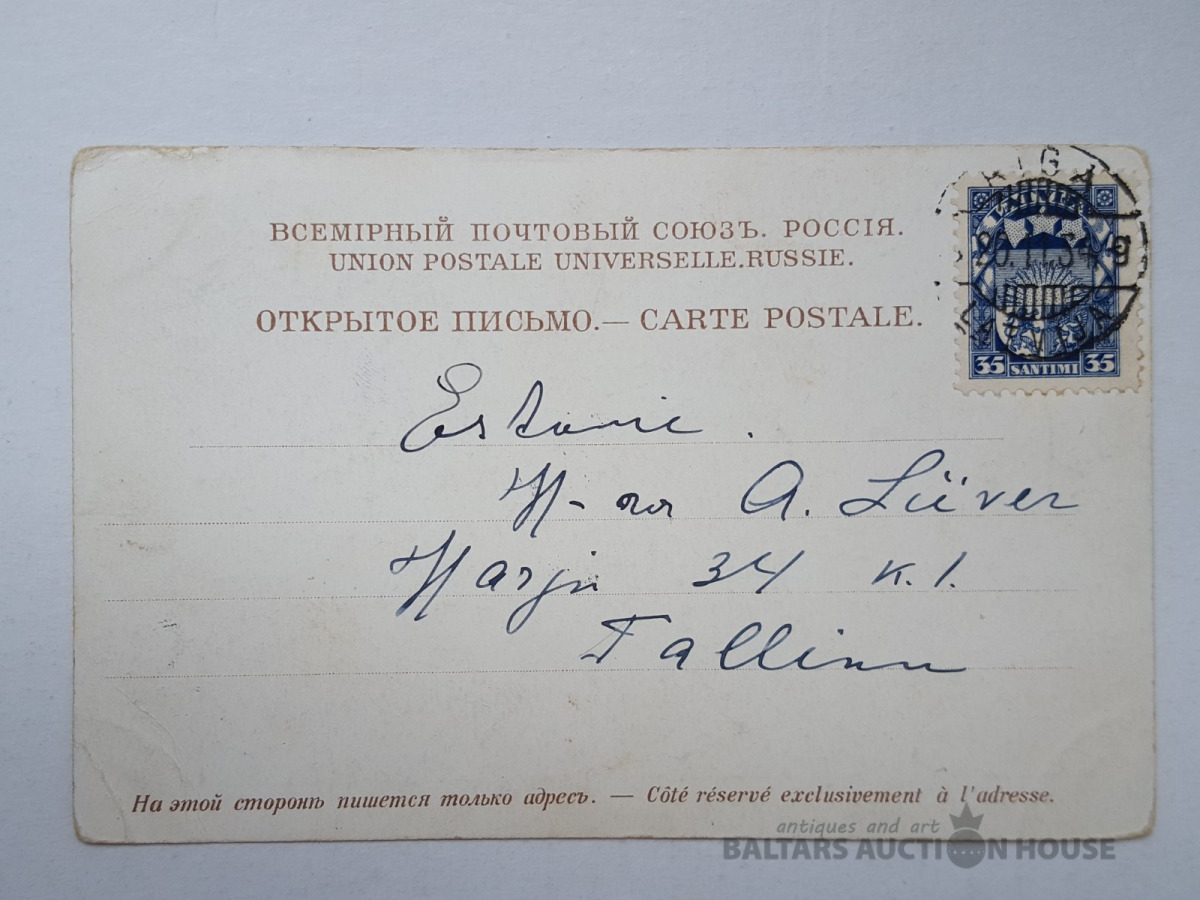 ВСЕМІРНЫЙ ПОЧТОВЫЙ СОЮЗЪ. РОССІЯ.
UNION POSTALE UNIVERSELLE.RUSSIE.
ОТКРЫТОЕ ПИСЬМО.— CARTE POSTALE.
RIGA
LATVIJA
35 SANTIMI 35
Estonie.
H-ra A. Lüver
Harju 34 k. 1.
Tallinn
На этой сторонѣ пишется только адресъ. — Côté réservé exclusivement à l'adresse.
antiques and art
BALTARS AUCTION HOUSE